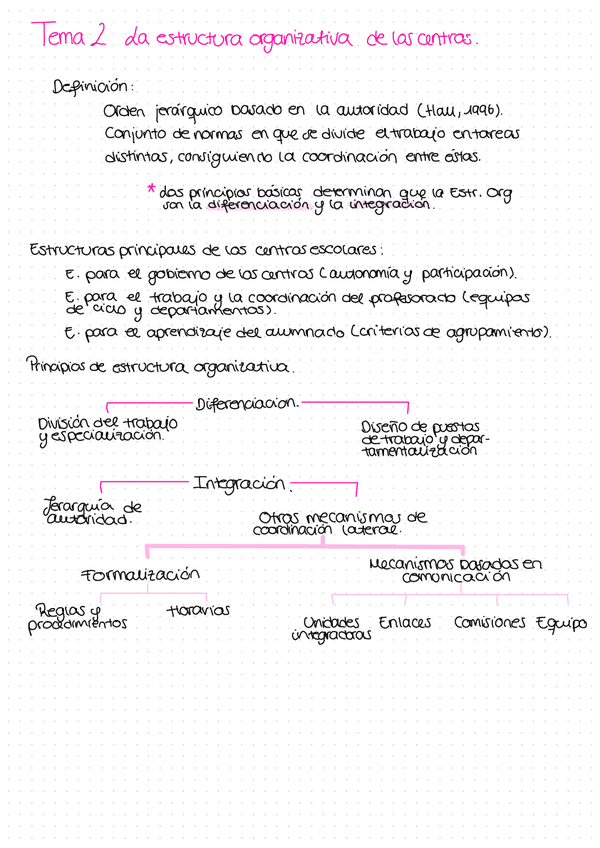 Tema 2 La estructura organizativa de los centros.
Definición:
Orden jerárquico basado en la autoridad (Hall, 1996).
Conjunto de normas en que se divide el trabajo en tareas
distintas, consiguiendo la coordinación entre éstas.
* dos principios básicos determinan que la Estr. Org
son la diferenciación y la integración.
Estructuras principales de los centros escolares:
E. para el gobierno de los centros (autonomía y participación).
E. para el trabajo y la coordinación del profesorado (equipos
de ciclo y departamentos).
E. para el aprendizaje del alumnado (criterios de agrupamiento).
Principios de estructura organizativa.
Diferenciacion.
División del trabajo
y especialización.
Diseño de puestos
de trabajo y depar-
tamentalización
Integración.
Jerarquía de
autoridad.
Otros mecanismos de
coordinación lateral.
Formalización
Mecanismos basados en
comunicación
Reglas y
procedimientos
Horarios
Unidades
integradoras
Enlaces
Comisiones
Equipo